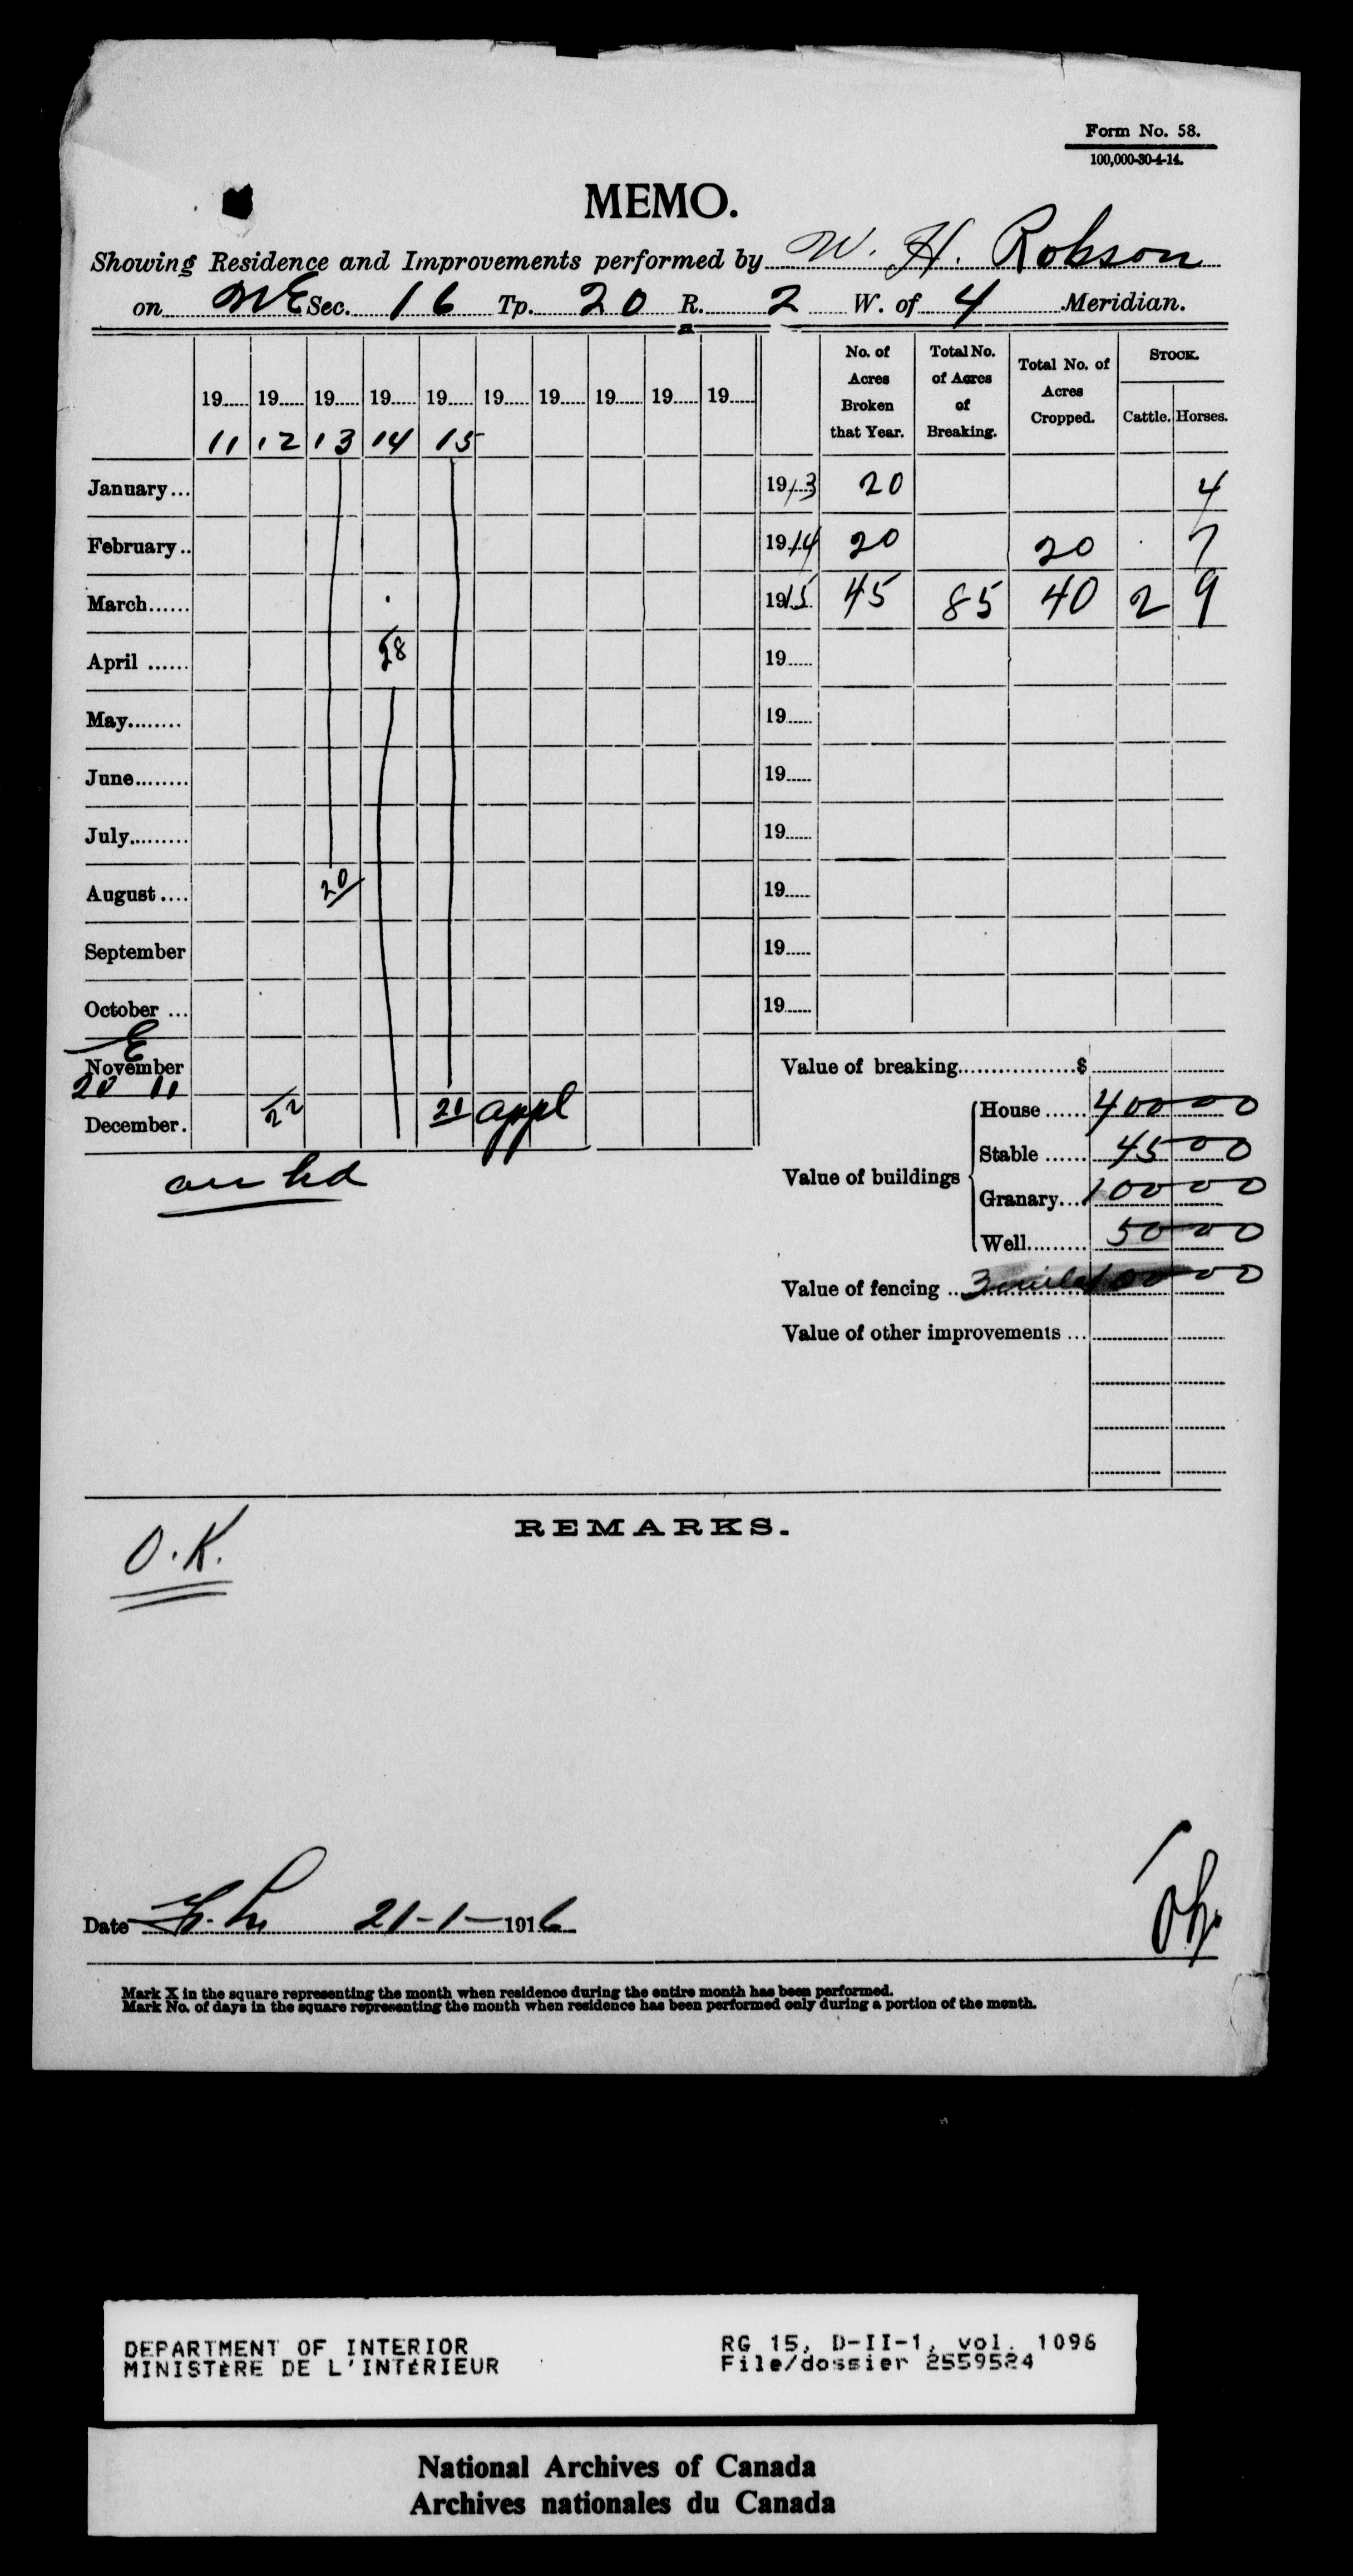 Form No. 58.
100,000-30-4-14.
MEMO.
Showing Residence and Improvements performed by W. H. Robson
on NE Sec. 16 Tp. 20 R. 2 W. of 4 Meridian.
19 11 19 12 19 13 19 14 19 15 19 19 19 19 19
No. of Acres Broken that Year. Total No. of Acres of Breaking. Total No. of Acres Cropped. STOCK. Cattle. Horses.
January... 1913 20 4
February.. 1914 20 20 7
March...... 1915 45 85 40 2 9
April ...... 28 19
May........ 19
June........ 19
July......... 19
August .... 20 19
September 19
October ... 19
E
November
20 11
Value of breaking.................$
December. 22 21 appl
on hd
Value of buildings
House ...... 400 00
Stable ...... 45 00
Granary... 100 00
Well......... 50 00
Value of fencing .. 3 miles 100 00
Value of other improvements ...
REMARKS.
O.K.
Date 21-1-1916
Mark X in the square representing the month when residence during the entire month has been performed.
Mark No. of days in the square representing the month when residence has been performed only during a portion of the month.
DEPARTMENT OF INTERIOR
MINISTÈRE DE L'INTÉRIEUR
RG 15, D-II-1, vol. 1096
File/dossier 2559524
National Archives of Canada
Archives nationales du Canada